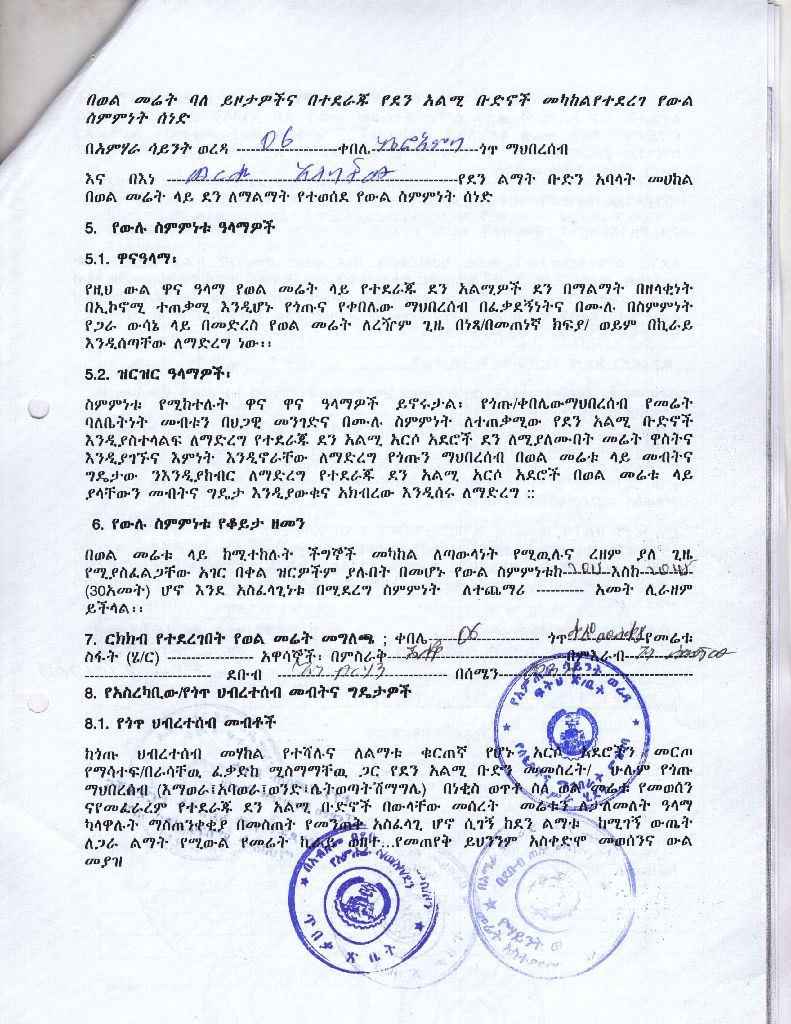 በወል መሬት ባለ ይዞታዎችና በተደራጁ የደን አልሚ ቡድኖች መካከልየተደረገ የውል
ስምምነት ሰነድ
በአምሃራ ሳይንት ወረዳ ------------06------------ቀበሌ--------------------ጎዋ ማህበረሰብ
እና በእነ ----------------------------------------የደን ልማት ቡድን አባላት መሀከል
በወል መሬት ላይ ደን ለማልማት የተወሰደ የውል ስምምነት ሰነድ
5. የውሉ ስምምነቱ ዓላማዎች
5.1. ዋናዓላማ፡
የዚህ ውል ዋና ዓላማ የወል መሬት ላይ የተደራጁ ደን አልሚዎች ደን በማልማት በዘላቂነት
በኢኮኖሚ ተጠቃሚ እንዲሆኑ የጎጡና የቀበሌው ማህበረሰብ በፈቃደኝነትና በሙሉ በስምምነት
የጋራ ውሳኔ ላይ በመድረስ የወል መሬት ለረዥም ጊዜ በነጻ/በመጠነኛ ክፍያ/ ወይም በኪራይ
እንዲሰጣቸው ለማድረግ ነው፡፡
5.2. ዝርዝር ዓላማዎች፡
ስምምነቱ የሚከተሉት ዋና ዋና ዓላማዎች ይኖሩታል፡ የጎጡ/ቀበሌውማህበረሰብ የመሬት
ባለቤትነት መብቱን በህጋዊ መንገድና በሙሉ ስምምነት ለተጠቃሚው የደን አልሚ ቡድኖች
እንዲያስተላልፍ ለማድረግ የተደራጁ ደን አልሚ አርሶ አደሮች ደን ለሚያለሙበት መሬት ዋስትና
እንዲያገኙና እምነት እንዲኖራቸው ለማድረግ የጎጡን ማህበረሰብ በወል መሬቱ ላይ መብትና
ግዴታው ንእንዲያከብር ለማድረግ የተደራጁ ደን አልሚ አርሶ አደሮች በወል መሬቱ ላይ
ያላቸውን መብትና ግዴታ እንዲያውቁና አክብረው እንዲሰሩ ለማድረግ ::
6. የውሉ ስምምነቱ የቆይታ ዘመን
በወል መሬቱ ላይ ከሚተከሉት ችግኞች መካከል ለጣውላነት የሚዉሉና ረዘም ያለ ጊዜ
የሚያስፈልጋቸው አገር በቀል ዝርዎችም ያሉበት በመሆኑ የውል ስምምነቱከ--------እስከ--------
(30አመት) ሆኖ እንደ አስፈላጊነቱ በሚደረግ ስምምነት ለተጨማሪ ---------- አመት ሊራዘም
ይችላል፡፡
7. ርክክብ የተደረገበት የወል መሬት መግለጫ ; ቀበሌ------06---------- ጎዋ----------የመሬቱ
ስፋት (ሄ/ር) ------------------ አዋሳኞች፡ በምስራቅ------------------በምእራብ------------------
-------------------------- ደቡብ -------------------------- በሰሜን--------------------------
8. የአስረካቢው/የጎዋ ህብረተሰብ መብትና ግዴታዎች
8.1. የጎዋ ህብረተሰብ መብቶች
ከጎጡ ህብረተሰብ መሃከል የተሻሉና ለልማቱ ቁርጠኛ የሆኑ አርሶ አደሮችን መርጦ
የማሳተፍ/በራሳቸዉ ፈቃድከ ሚስማማቸዉ ጋር የደን አልሚ ቡድን መመስረት/ ሁሉም የጎጡ
ማህበረሰብ (እማወራ፤አባወራ፤ወንድ፤ሴትወጣትሽማግሌ) በነቂስ ወጥቶ ስለ ወል መሬቱ የመወሰን
ናየመፈራረም የተደራጁ ደን አልሚ ቡድኖች በውላቸው መሰረት መሬቱን ለታለመለት ዓላማ
ካላዋሉት ማስጠንቀቂያ በመስጠት የመንጠቅ አስፈላጊ ሆኖ ሲገኝ ከደን ልማቱ ከሚገኝ ውጤት
ለጋራ ልማት የሚውል የመሬት ኪራይ ወዘተ...የመጠየቅ ይህንንም አስቀድሞ መወሰንና ውል
መያዝ